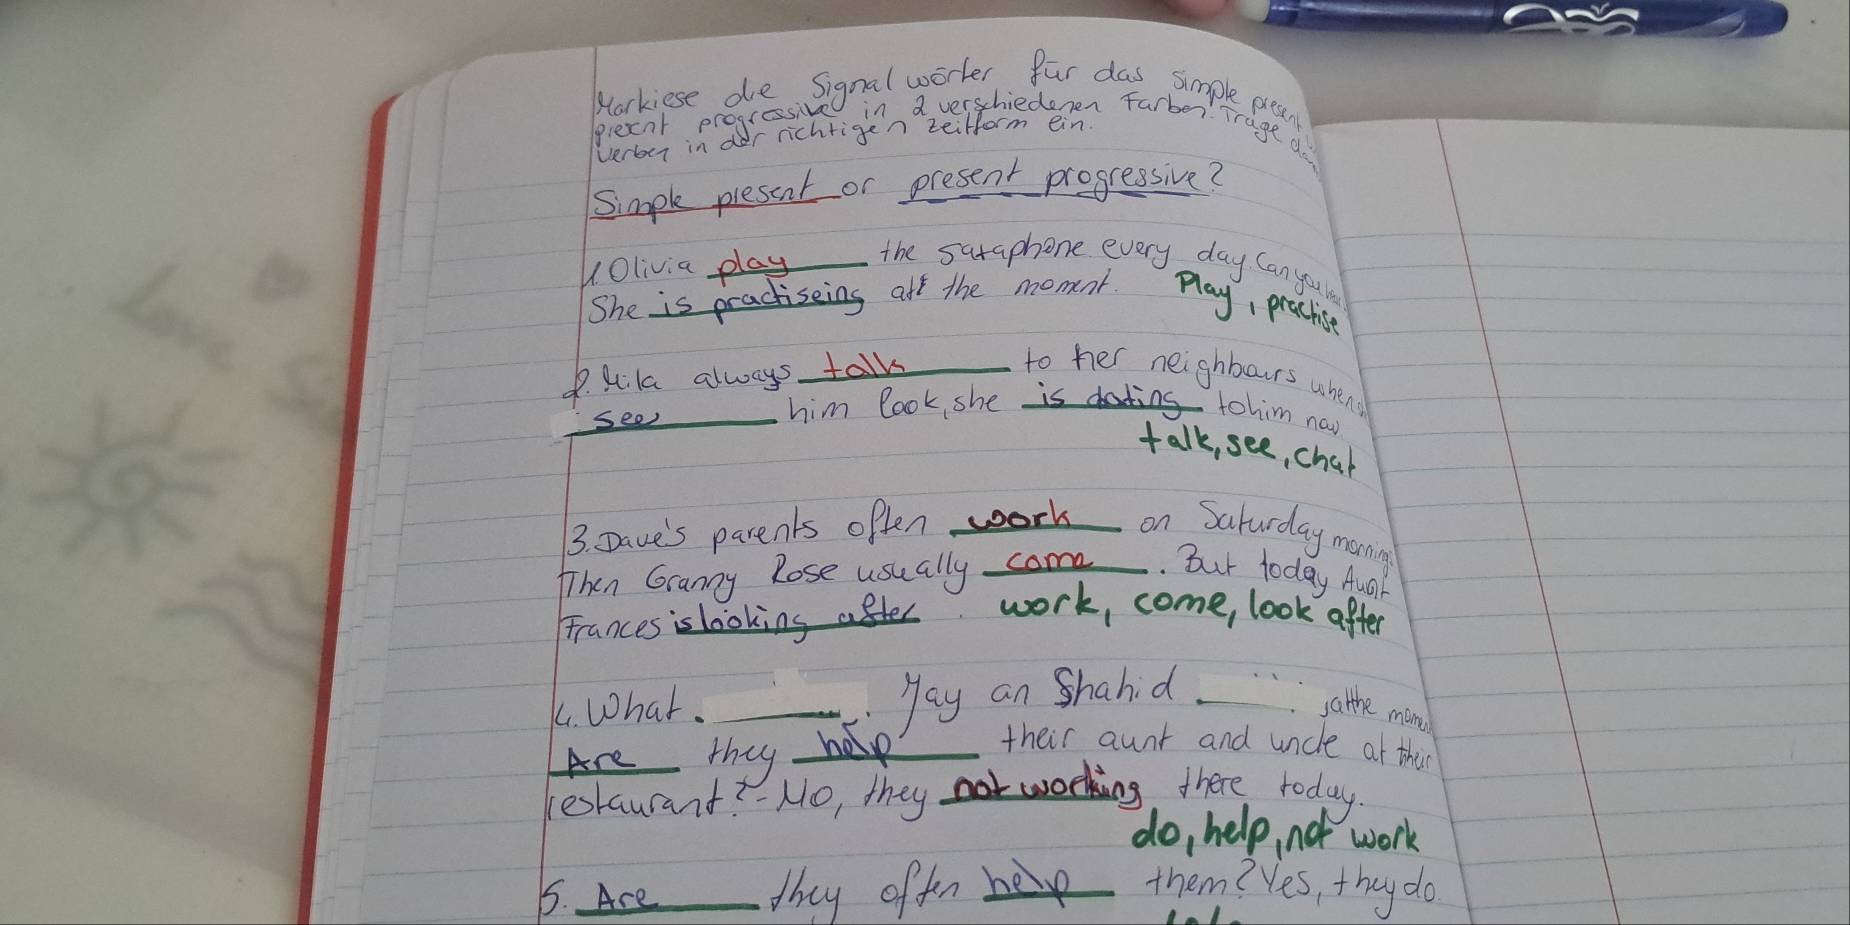 Markiese die Signalwörter für das simple present
present progressive in 2 verschiedenen Farben. Trage
Verben in der richtigen zeitform ein.
Simple present or present progressive?
1. Olivia play the saxaphone every day. Can you
She is practiseing at the moment. Play, practise
2. Mila always talk to her neighbours when
sees him look, she is chating to him now
talk, see, chat
3. Dave's parents often work on Saturday morning
Then Granny Rose usually come. But today Aunt
Frances is looking after. work, come, look after
4. What. Jay an Shahid at the moment
Are they help their aunt and uncle at their
restaurant? - No, they not working there today.
do, help, not work
5. Are they often help them? Yes, they do.